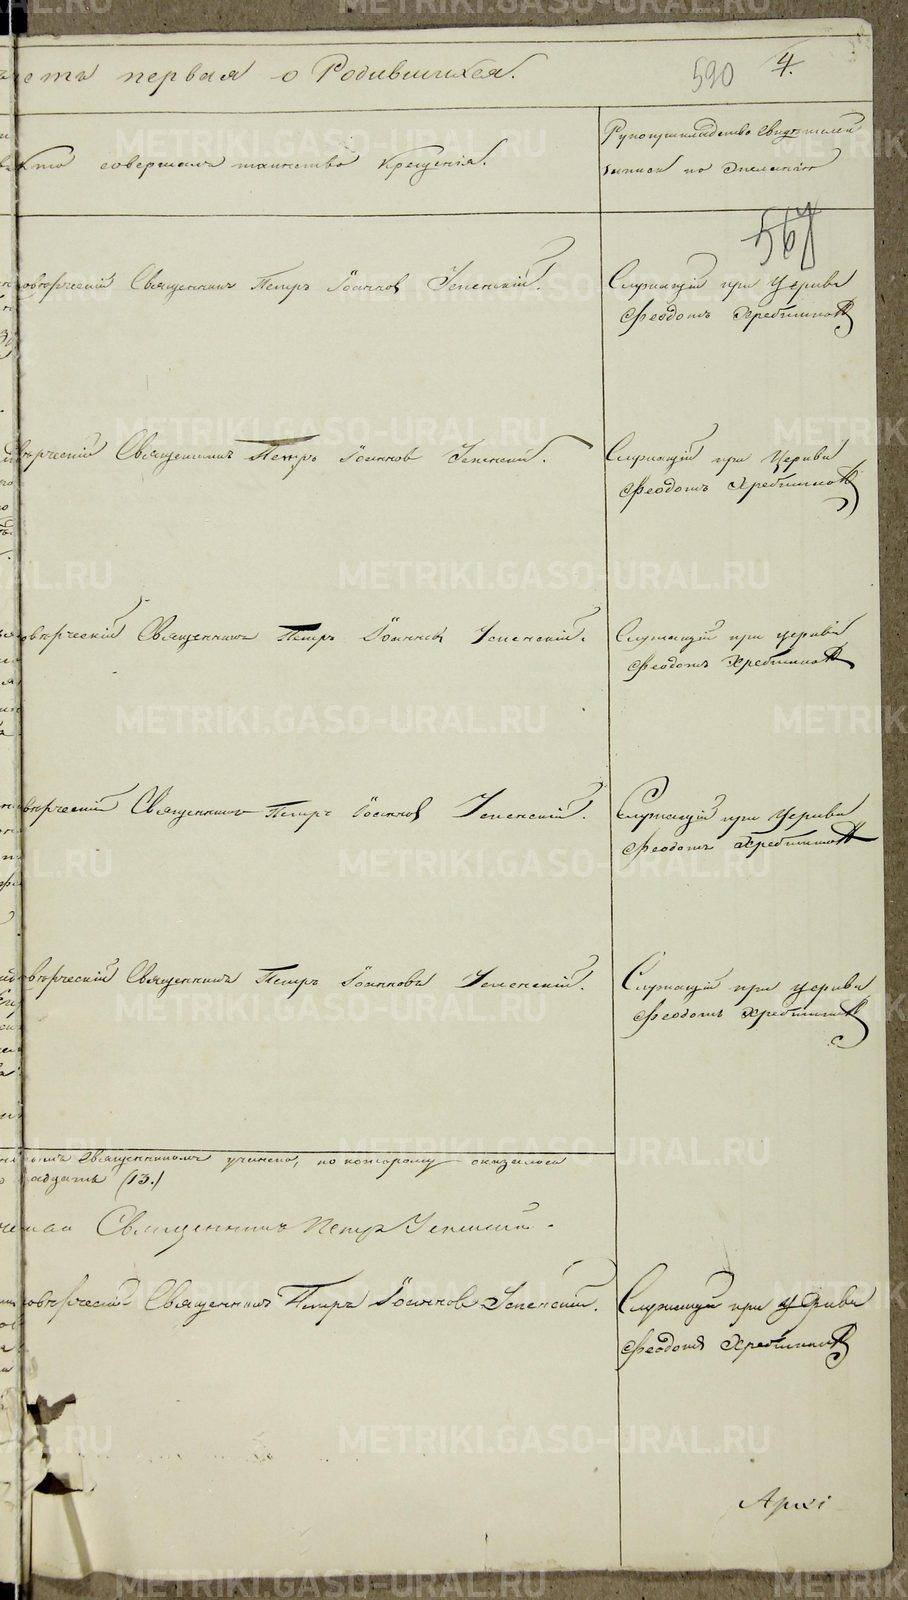 первая о Родившихся.
590 4.
Кто совершалъ таинство Крещенія.
Рукоприкладство Свидѣтелей
записи по желанію
567
Священникъ Петръ Іоанновъ Успенскій.
Служащій при Церкви
Феодотъ Хребтиковъ
Священникъ Петръ Іоанновъ Успенскій.
Служащій при Церкви
Феодотъ Хребтиковъ
Священникъ Петръ Іоанновъ Успенскій.
Служащій при церкви
Феодотъ Хребтиковъ
Священникъ Петръ Іоанновъ Успенскій.
Служащій при Церкви
Феодотъ Хребтиковъ
Священникъ Петръ Іоанновъ Успенскій.
Служащій при церкви
Феодотъ Хребтиковъ
Священникомъ учинено, по которому оказалось
(13.)
Священникъ Петръ Успенскій.
Священникъ Петръ Іоанновъ Успенскій.
Служащій при Церкви
Феодотъ Хребтиковъ
Архі
METRIKI.GASO-URAL.RU